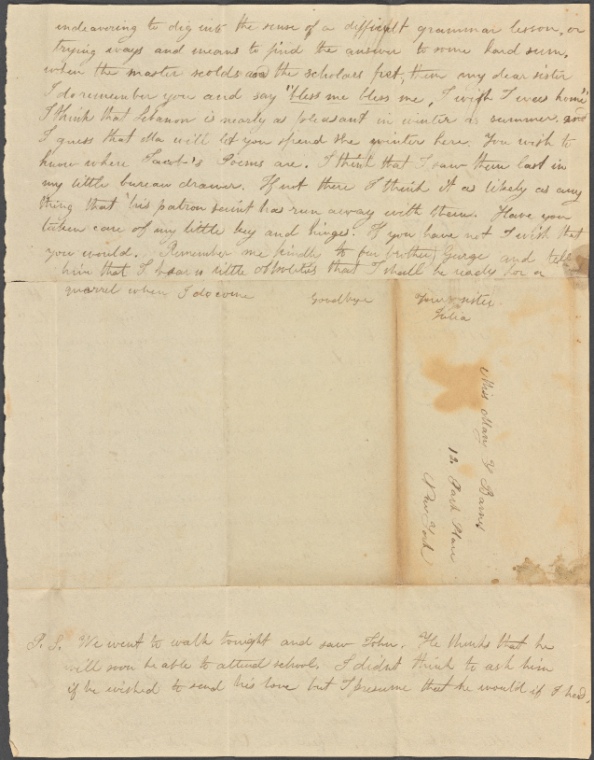 endeavoring to dig into the sense of a difficult grammar lesson, or
trying ways and means to find the answer to some hard sum,
when the master scolds and the scholars fret, then my dear sister
I do remember you and say "bless me bless me, I wish I was home"
I think that Lebanon is nearly as pleasant in winter as summer, and
I guess that Ma will let you spend the winter here. You wish to
know where Poems are. I think that I saw them last in
my little bureau drawer. If not there I think it as likely as any
thing that his patron saint has run away with them. Have you
taken care of my little key and hinges. If you have not I wish that
you would. Remember me kindly to brother George and tell
him that I bear a little that I shall be ready for a
quarrel when I do come Goodbye Your sister
Julia
Miss Mary Y Barnes
12 Park Place
New York
P. S. We went to walk tonight and saw John. He thinks that he
will soon be able to attend school. I didst think to ask him
if he wished to send his love but I presume that he would if I had.